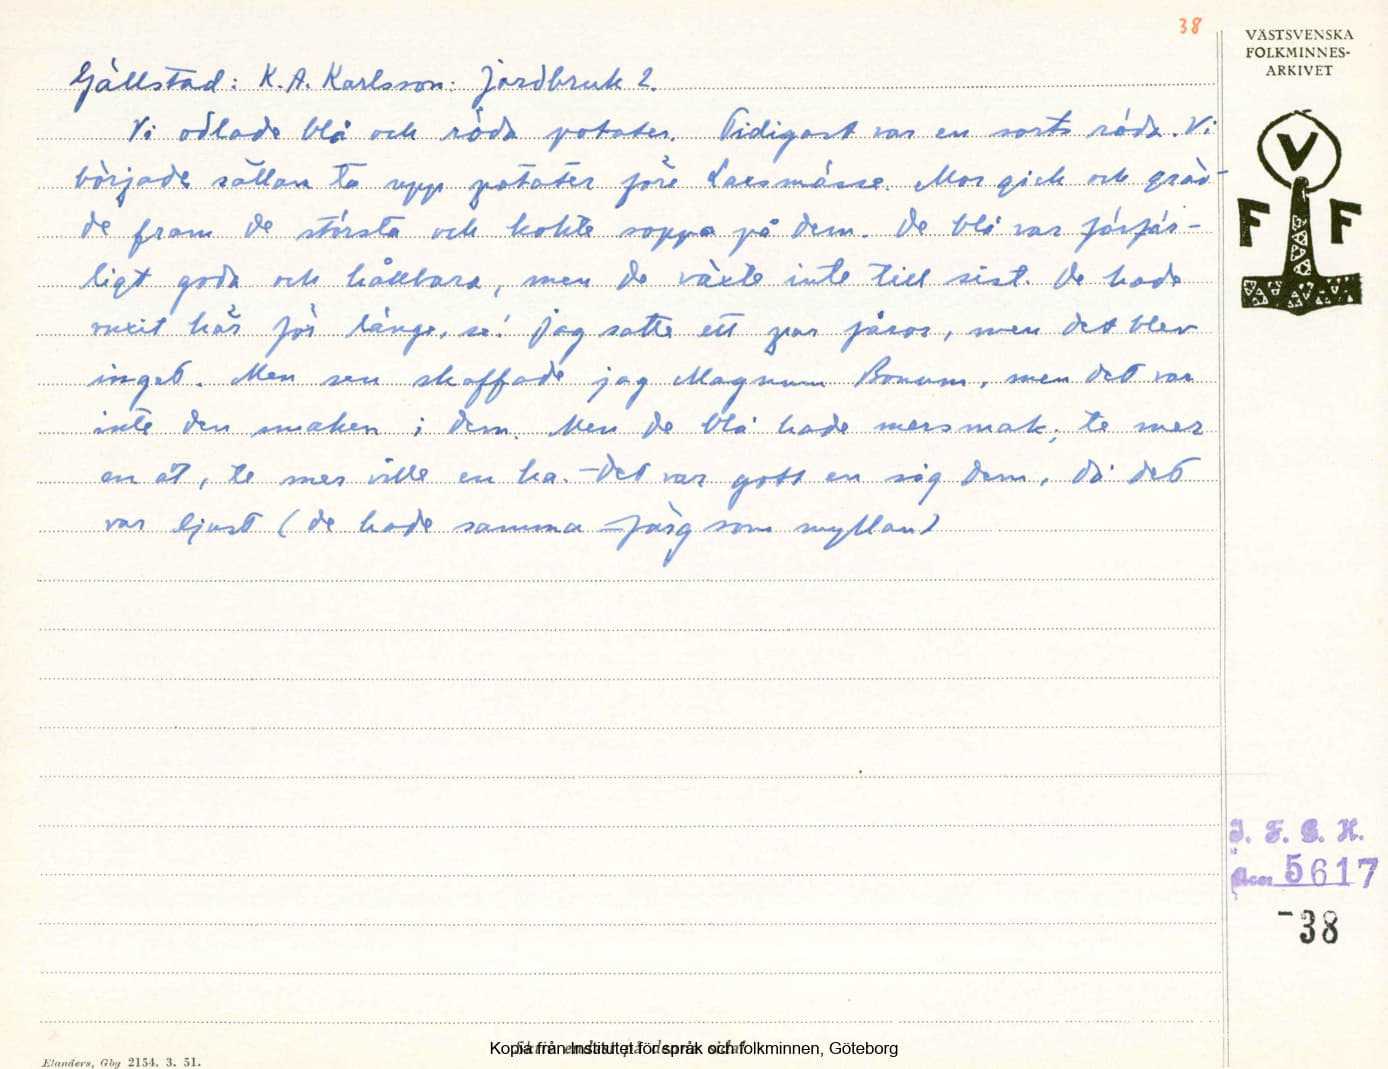 38
VÄSTSVENSKA
FOLKMINNES-
ARKIVET
V
F F
Gällstad: K. A. Karlsson: Jordbruk 2.
Vi odlade blå och röda potater. Tidigast var en sorts röda. Vi
började sällan ta upp potäter före Larsmässe. Mor gick och gräv-
de fram de största och kokte soppa på dem. De blå var förfär-
ligt goda och hållbara, men de växte inte till sist. De hade
vuxit här för länge, se! Jag satte ett par fåror, men det blev
inget. Men sen skaffade jag Magnum Bonum, men det var
inte den smaken i dem. Men de blå hade mersmak, te mer
en åt, te mer ville en ha. – Det var gott en såg dem, då det
var ljust (de hade samma färg som myllan)
I. F. G. H.
Acc. 5617
-38
Elanders, Gbg 2154. 3. 51.
Kopia från Institutet för språk och folkminnen, Göteborg